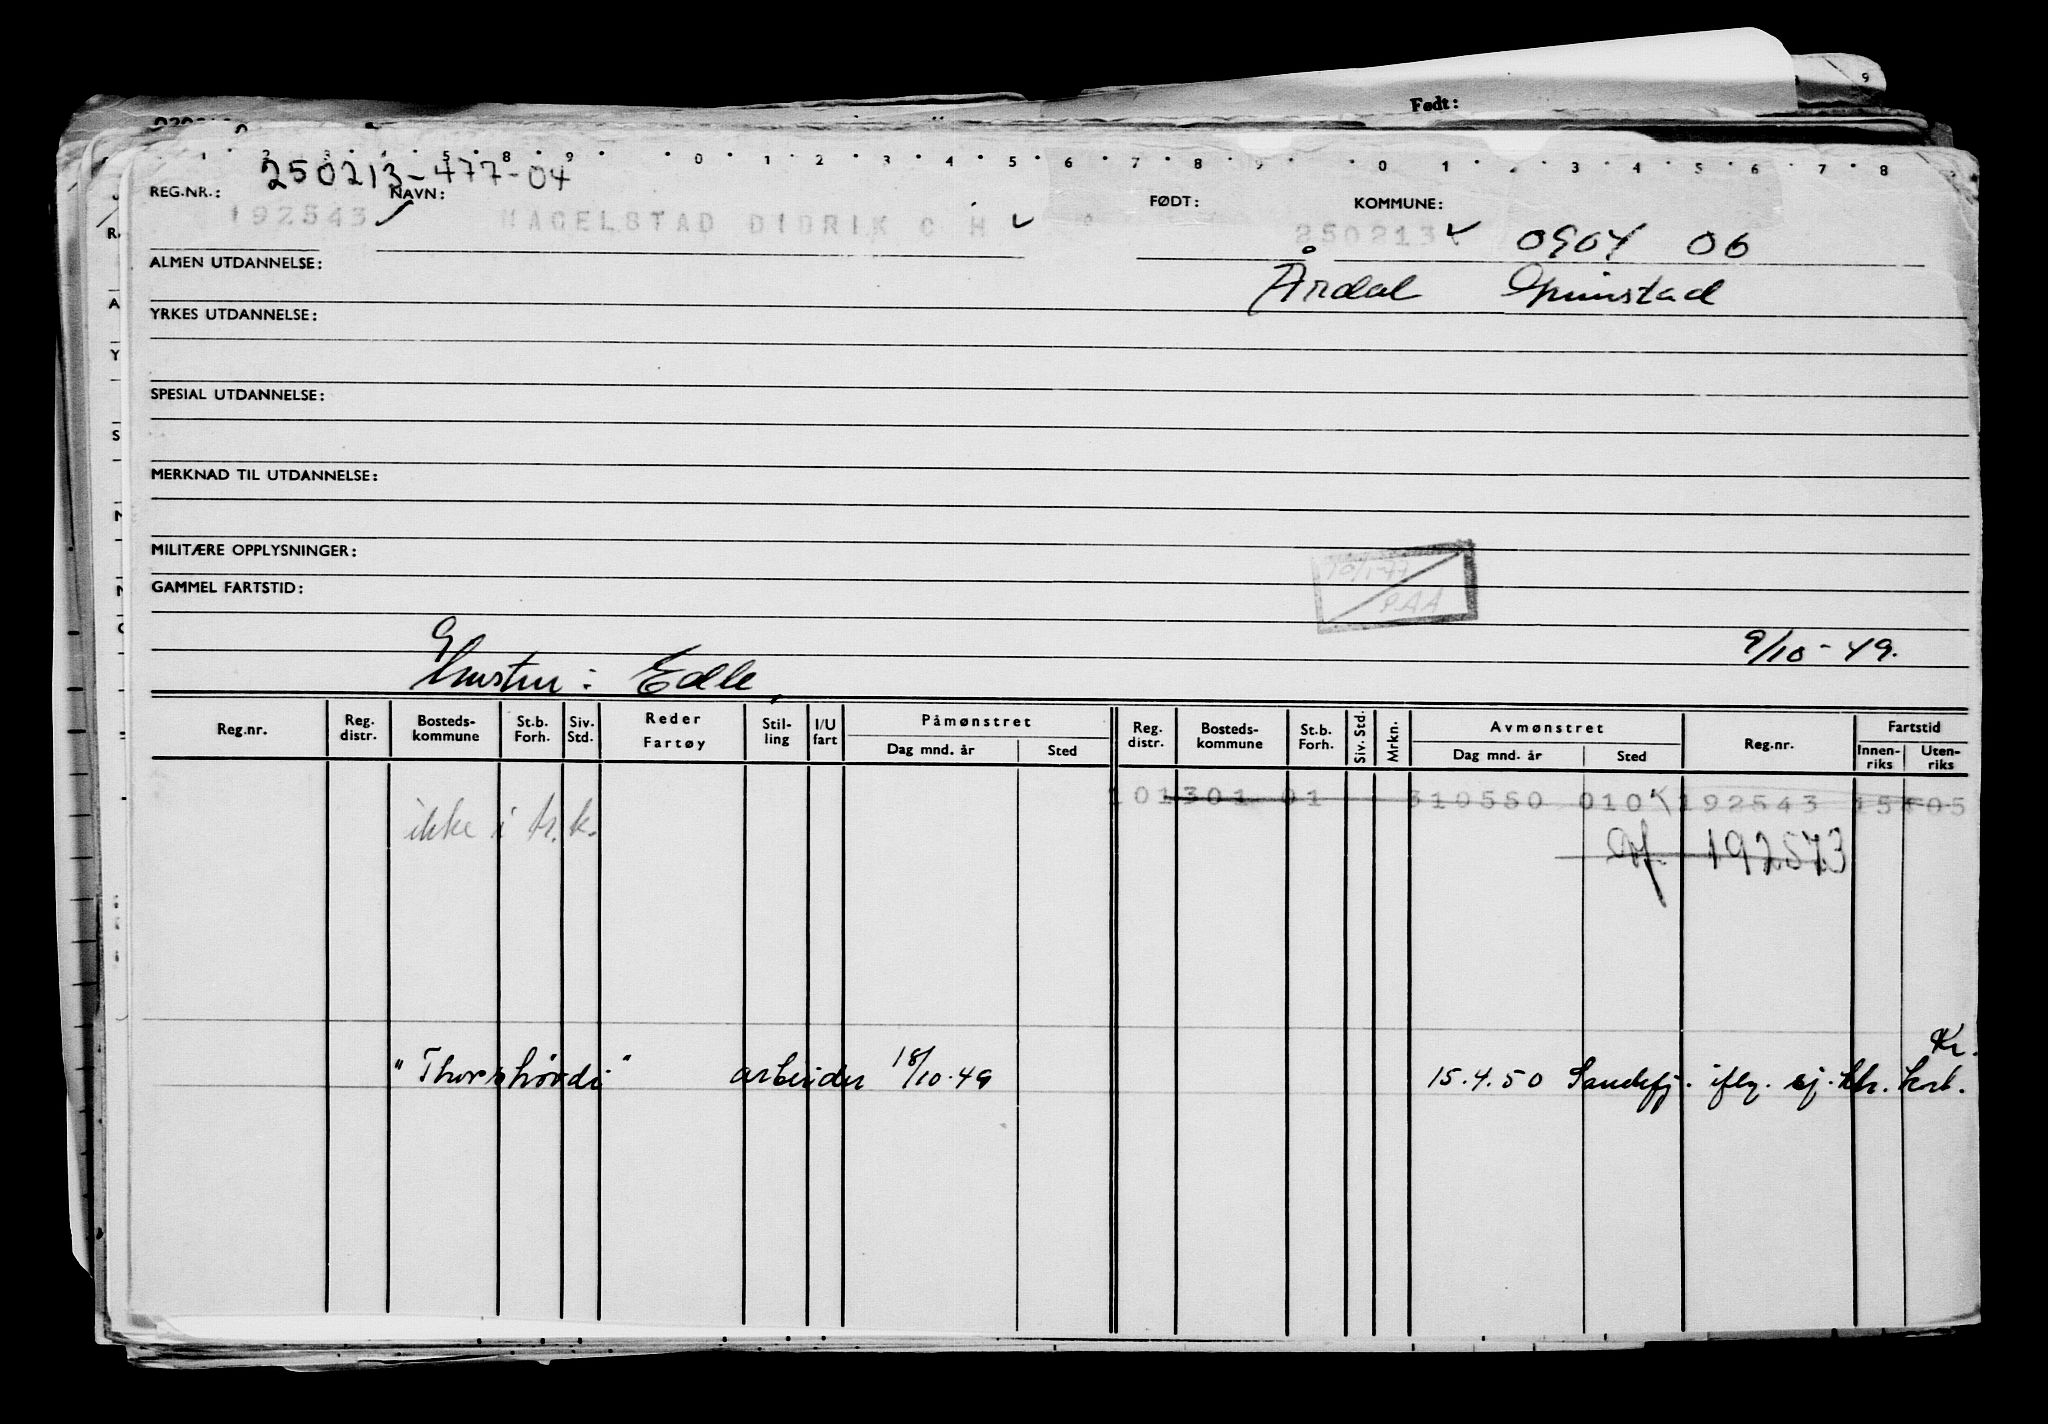 Født:
9
1 2 3 4 5 8 9 0 1 2 3 4 5 6 7 8 9 0 1 2 3 4 5 6 7 8
250213-477-04
REG.NR.: NAVN: FØDT: KOMMUNE:
192543 HAGELSTAD DIDRIK C H 250213 0904 06
ALMEN UTDANNELSE: Årdal Grimstad
YRKES UTDANNELSE:
SPESIAL UTDANNELSE:
MERKNAD TIL UTDANNELSE:
MILITÆRE OPPLYSNINGER:
10/1-77
PAA
GAMMEL FARTSTID:
9/10-49.
Hustru: Edle,
Reg.nr. Reg. distr. Bosteds- kommune St.b. Forh. Siv. Std. Reder Fartøy Stil- ling I/U fart Påmønstret Dag mnd. år Sted Reg. distr. Bosteds- kommune St.b. Forh. Siv. Std. Mrkn. Avmønstret Dag mnd. år Sted Reg.nr. Fartstid Innen- riks Uten- riks
101301 01 310550 010 192543 15 05
ikke i tr.k.
192543
Kr.
"Thorshövdi" arbeider 18/10-49 15.4.50 Sandefj. iflg. sj. ktr. kort.